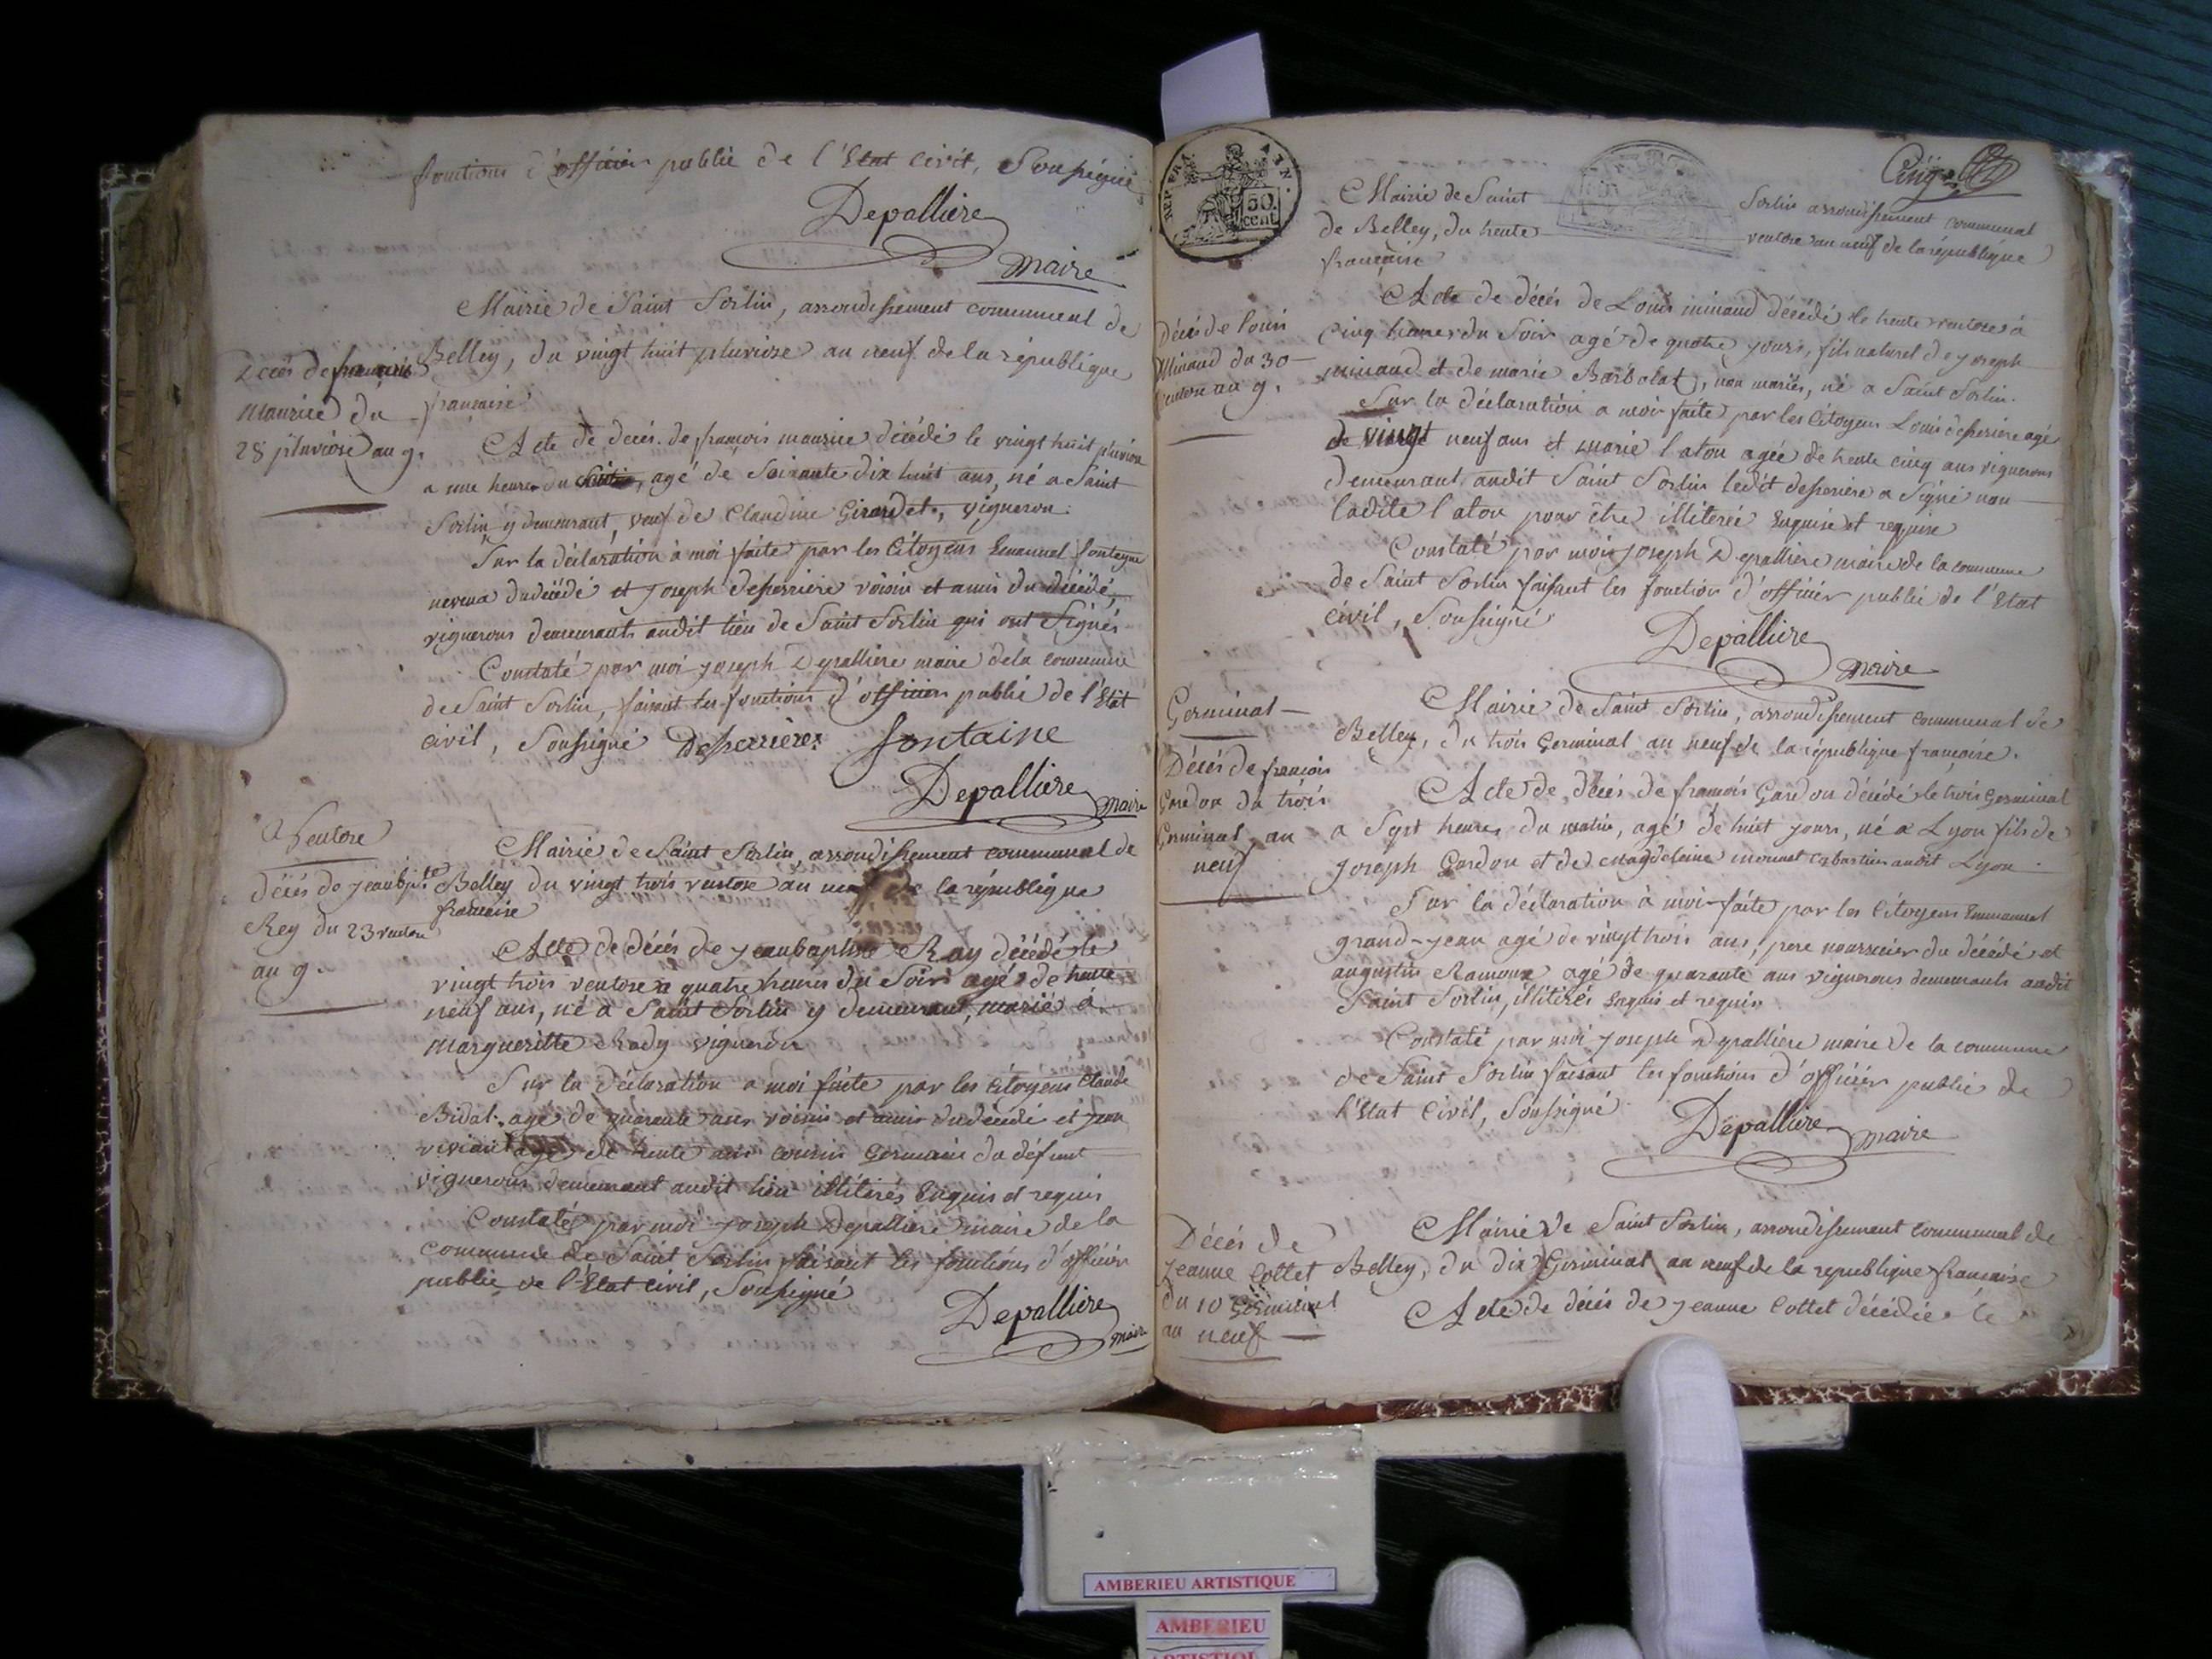 fonctions d'officier public de l'Etat civil, Soussigné
Depalliere
maire
Mairie de Saint Sorlin, arrondissement communal de
Belley, du vingt huit pluviose an neuf de la république
française
Décès de françois
Maurice du
28 pluviose an 9.
Acte de décés de françois maurice décédé le vingt huit pluviose
a une heure du agé de Soixante dix huit ans, né a Saint
Sorlin y demeurant, veuf de Claudine Girardet, vigneron.
Sur la déclaration à moi faite par les Citoyens Emanuel fontayne
neveux du décédé et Joseph desperriere voisin et amis du décédé,
vignerons demeurants audit lieu de Saint Sorlin qui ont Signés
Constaté par moi Joseph Depalliere maire de la commune
de Saint Sorlin, faisant les fonctions d'officier public de l'Etat
civil, Soussigné Desperrieres fontaine
Depalliere maire
Ventose
décés de jean bpte
Rey du 23 ventose
an 9.
Mairie de Saint Sorlin, arrondissement communal de
Belley du vingt trois ventose an neuf de la république
francaise
Acte de décés de jean baptiste Rey décédé le
vingt trois ventose a quatre heures du Soir agé de trente
neuf ans, né a Saint Sorlin y demeurant, marié à
Margueritte Rady vigneron
Sur la déclaration a moi faite par les Citoyens Claude
Bidal agé de quarante ans voisin et amis du décédé et jean
viviant agé de trente ans cousin Germain du défunt
vignerons demeurant audit lieu illitérés Enquis et requis
Constaté par moi Joseph Depalliere maire de la
commune de Saint Sorlin faisant les fonctions d'officier
public de l'Etat civil, Soussigné
Depalliere maire
REP. FRA.
50.
cent
Cinq
Mairie de Saint Sorlin arrondissement communal
de Belley, du trente ventose an neuf de la république
française
Décés de louis
Minaud du 30
ventose an 9.
Acte de décés de Louis minaud décédé le trente ventose à
Cinq heures du Soir agé de quatre jours, fils naturel de joseph
minaud et de marie Barbolat, non mariés, né a Saint Sorlin.
Sur la déclaration a moi faite par les Citoyens Louis desperiere agé
de vingt neuf ans et marie laton agée de trente cinq ans vignerons
demeurant audit Saint Sorlin ledit desperiere a Signé non
ladite laton pour être illiterée Enquise et requise
Constaté par moi Joseph Depalliere maire de la commune
de Saint Sorlin faisant les fonction d'officier public de l'Etat
civil, Soussigné
Depalliere
maire
Germinal
Mairie de Saint Sorlin, arrondissement communal de
Belley, du trois Germinal an neuf de la république françoise.
Décés de françois
Gardon du trois
Germinal an
neuf
Acte de décés de francois Gardon décédé le trois Germinal
a Sept heures du matin, agé de huit jours, né a Lyon fils de
Joseph Gardon et de magdeleine audit Lyon
Sur la déclaration à moi faite par les Citoyens Emmanuel
grand-jean agé de vingt trois ans, pere nourricier du décédé et
augustin Ramoux agé de quarante ans vignerons demeurants audit
Saint Sorlin, illitérés Enquis et requis
Constaté par moi Joseph Depalliere maire de la commune
de Saint Sorlin faisant les fonctions d'officier public de
l'Etat Civil, Soussigné
Depalliere maire
Décés de
jeanne Collet
du 10 Germinal
an neuf
Mairie de Saint Sorlin, arrondissement communal de
Belley, du dix Germinal an neuf de la republique francaise
Acte de décés de jeanne Collet décédée le
AMBERIEU ARTISTIQUE
AMBERIEU
ARTISTIQUE